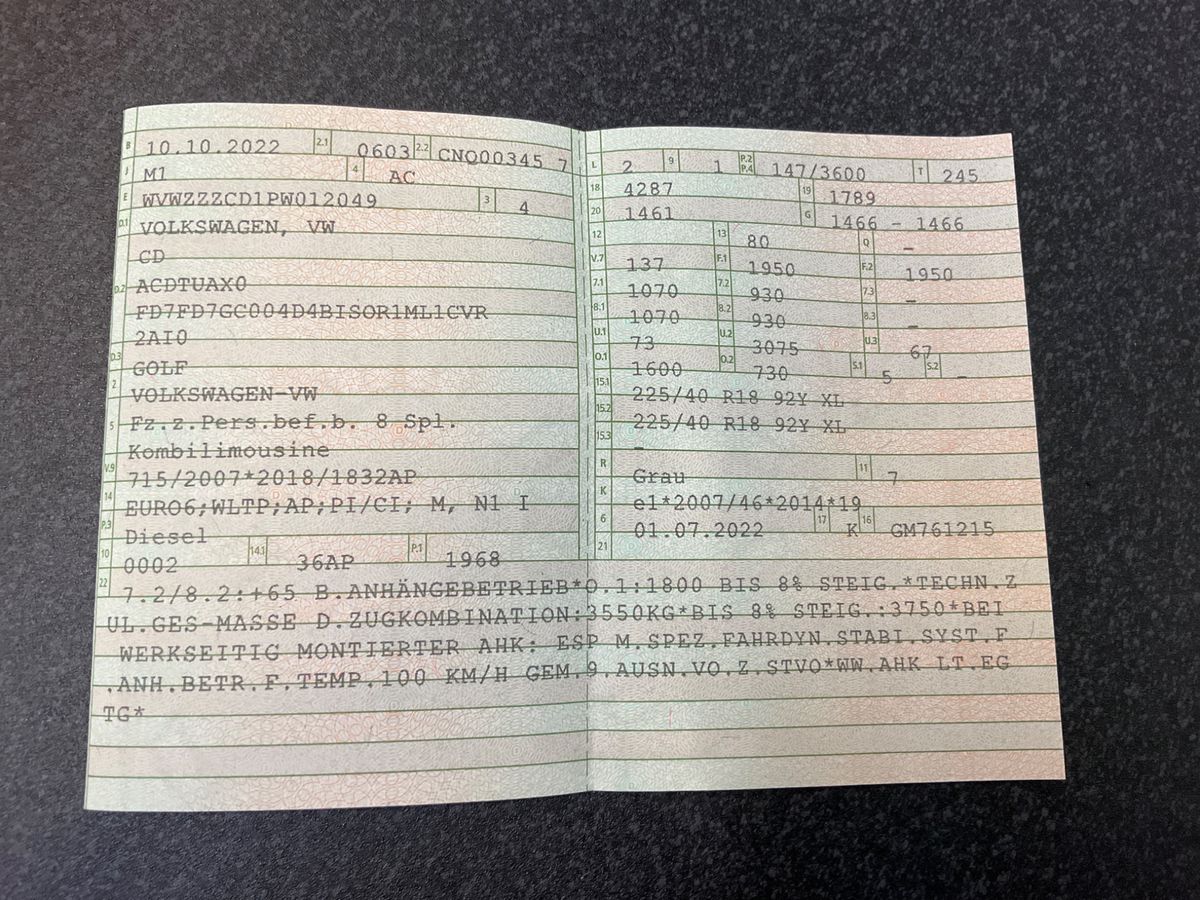 B 10.10.2022 2.1 0603 2.2 CNQ00345 7
J M1 4 AC
E WVWZZZCD1PW012049 3 4
D.1 VOLKSWAGEN, VW
CD
D.2 ACDTUAX0
FD7FD7GC004D4BISOR1ML1CVR
2AI0
D.3 GOLF
2 VOLKSWAGEN-VW
5 Fz.z.Pers.bef.b. 8 Spl.
Kombilimousine
V.9 715/2007*2018/1832AP
14 EURO6;WLTP;AP;PI/CI; M, N1 I
P.3 Diesel
10 0002 14.1 36AP P.1 1968
L 2 9 1 P.2 P.4 147/3600 T 245
18 4287 19 1789
20 1461 G 1466 - 1466
12 13 80 Q -
V.7 137 F.1 1950 F.2 1950
7.1 1070 7.2 930 7.3 -
8.1 1070 8.2 930 8.3 -
U.1 73 U.2 3075 U.3 67
O.1 1600 O.2 730 S.1 5 S.2 -
15.1 225/40 R18 92Y XL
15.2 225/40 R18 92Y XL
15.3 -
R Grau 11 7
K e1*2007/46*2014*19
6 01.07.2022 17 K 16 GM761215
21
22 7.2/8.2:+65 B.ANHÄNGEBETRIEB*O.1:1800 BIS 8% STEIG.*TECHN.Z
UL.GES-MASSE D.ZUGKOMBINATION:3550KG*BIS 8% STEIG.:3750*BEI
WERKSEITIG MONTIERTER AHK: ESP M.SPEZ.FAHRDYN.STABI.SYST.F
.ANH.BETR.F.TEMP.100 KM/H GEM.9.AUSN.VO.Z.STVO*WW.AHK LT.EG
TG*